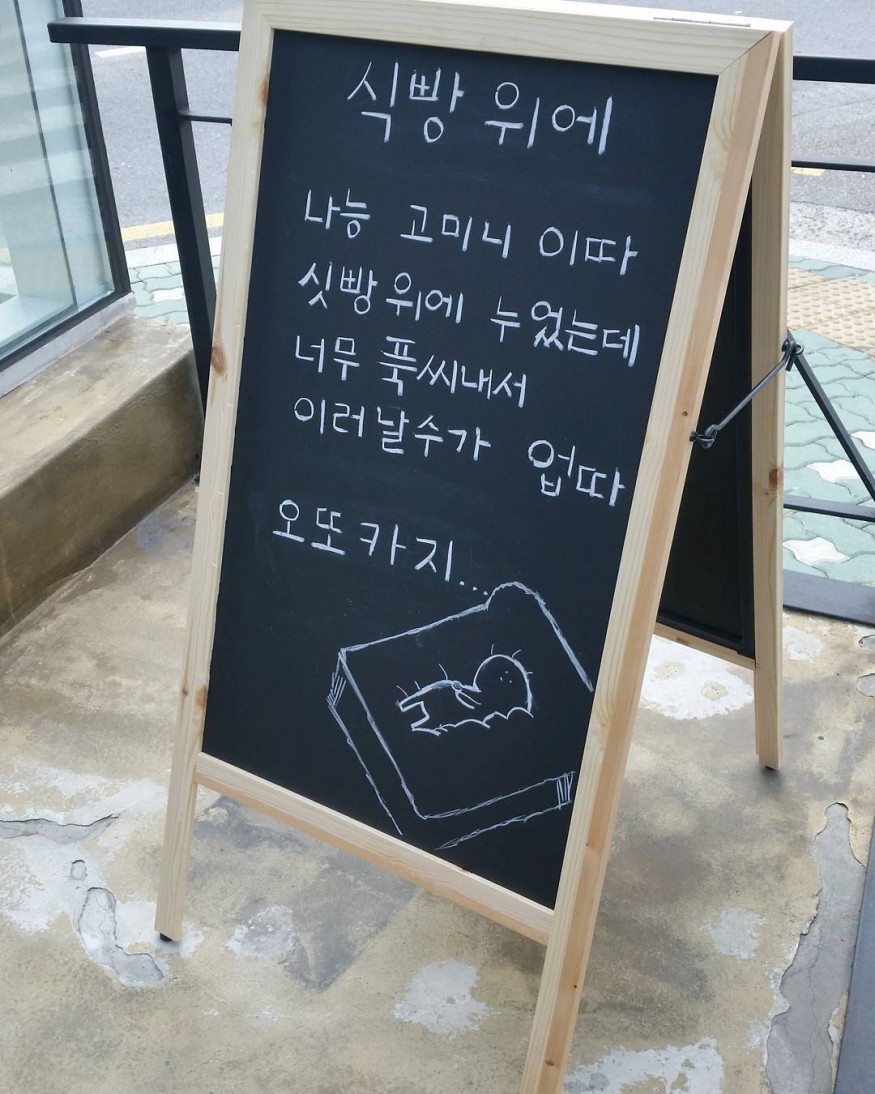 식빵 위에
나능 고미니 이따
싯빵 위에 누웠는데
너무 푹씨내서
이러날수가 업따
오또카지...